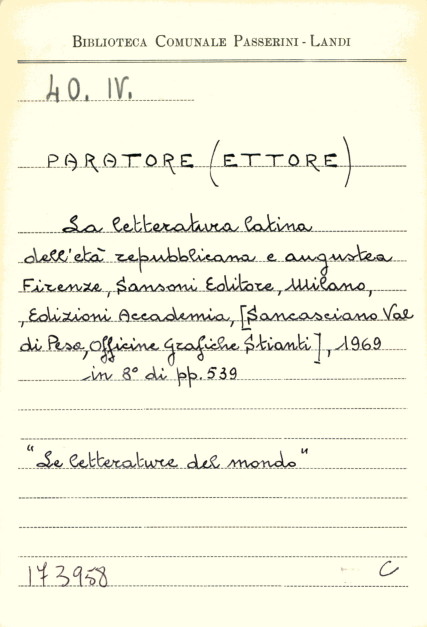 BIBLIOTECA COMUNALE PASSERINI - LANDI
40. IV.
PARATORE (ETTORE)
La letteratura latina
dell'età repubblicana e augustea
Firenze, Sansoni Editore, Milano,
, Edizioni Accademia, [Sancasciano Val
di Pesa, Officine Grafiche Stianti], 1969
in 8° di pp. 539
"Le letterature del mondo"
173958
C